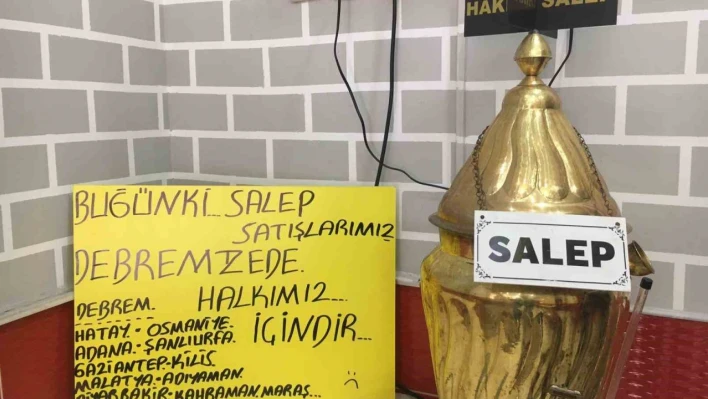 HAK SALEP
BUĞÜNKİ... SALEP
SATIŞLARIMIZ
DEBREMZEDE.
HALKIMIZ....
İÇİNDİR...
DEBREM.
HATAY.- OSMANİYE.
ADANA.- ŞANLIURFA.
GAZİANTEP.- KİLİS
MALATYA.- ADIYAMAN.
DİYARBAKIR- KAHRAMAN.MARAŞ...
SALEP